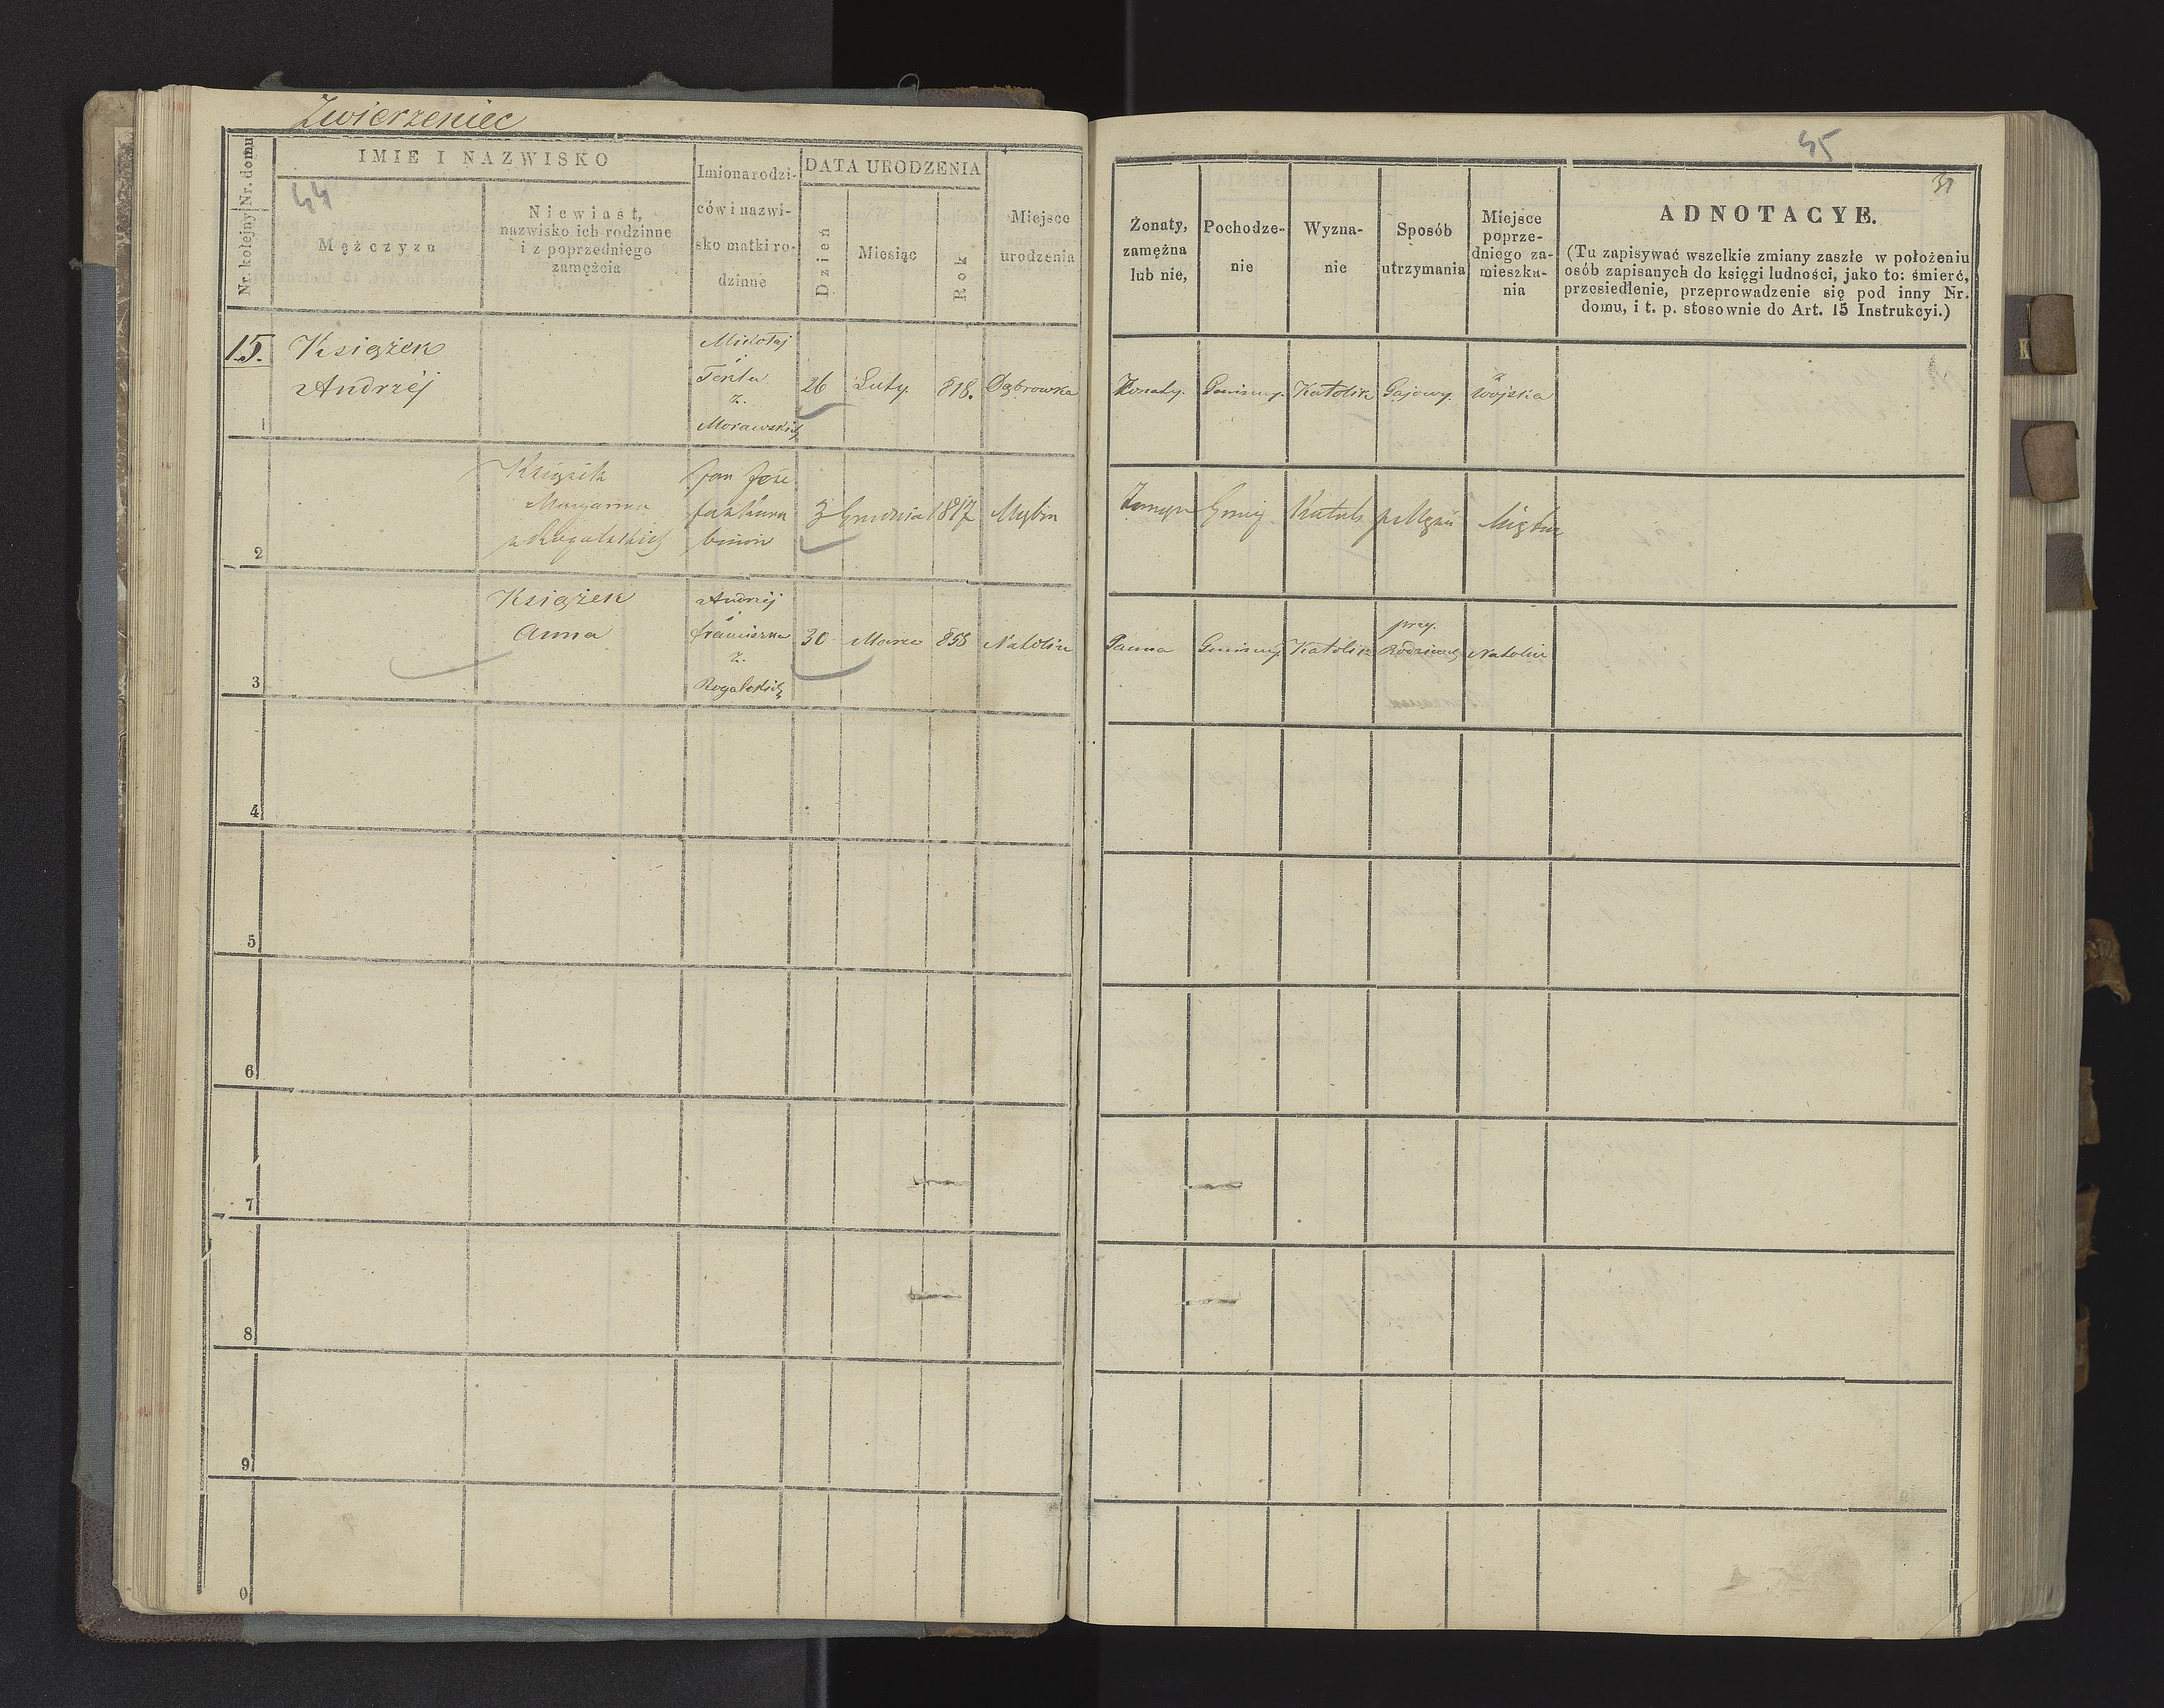 Zwierzeniec
Nr. kolejny Nr. domu
IMIE I NAZWISKO
44
Mężczyzn
Niewiast,
nazwisko ich rodzinne
i z poprzedniego
zamęźcia
Imiona rodzi-
ców i nazwi-
sko matki ro-
dzinne
DATA URODZENIA
Dzień
Miesiąc
Rok
Miejsce
urodzenia
15.
1
Książek
Andrzéj
Mikołaj
i
Tekla
z.
Morawskich
26
Luty.
818.
Dąbrowka
2
Książek
Maryanna
z Rogalskich
Jan
3
Grudnia
1817
3
Książek
Anna
Andrzéj
i
franciszka
z.
Rogalskich
30
Marca
858
Natolin
4
5
6
7
8
9
0
45
31
Żonaty,
zamęźna
lub nie,
Pochodze-
nie
Wyzna-
nie
Sposób
utrzymania
Miejsce
poprze-
dniego za-
mieszka-
nia
ADNOTACYE.
(Tu zapisywać wszelkie zmiany zaszłe w położeniu
osób zapisanych do księgi ludności, jako to: śmierć,
przesiedlenie, przeprowadzenie się pod inny Nr.
domu, i t. p. stosownie do Art. 15 Instrukcyi.)
Żonaty.
Gminny.
Katolik
Gajowy.
z
wojska
przy.
Panna
Gminny.
Katolik
Rodzicach
Natolin